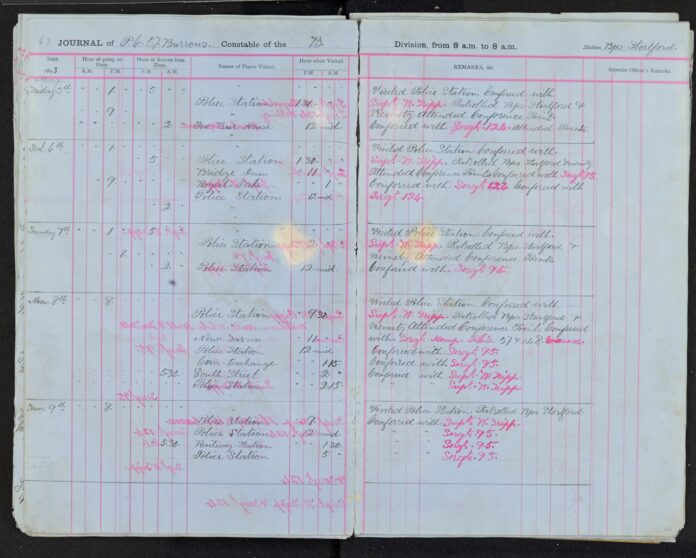 67 JOURNAL of P.C. 57 Burrows. Constable of the B. Division, from 8 a.m. to 8 a.m. Station Bps. Stortford.
Date. Hour of going on Duty. Hour of Return from Duty. Names of Places Visited. Hour when Visited. REMARKS, &c. Superior Officer's Remarks.
189 A.M. P.M. A.M. P.M. A.M. P.M.
Friday 5th 1 5 Visited Police Station Conferred with
Police Station 1.30 Supt. W. Tripp. Patrolled Bps Stortford &
9 Vicinity Attended Conference Points
2 Fox Bury House 12 mid. Conferred with Sergt 124. Attended Points.
Sat 6th 1 Visited Police Station Conferred with
5 Police Station 1.30 Supt. W. Tripp. Patrolled Bps Stortford Vicinity
Bridge Inn 11 Attended Conference Points Conferred with Sergt 95
9 Royal Oak 1 Conferred with Sergt 122 Conferred with
Police Station 12 mid Sergt 124.
2
Sunday 7th 1 5 Visited Police Station Conferred with
Police Station 2 Supt. W. Tripp. Patrolled Bps Stortford &
8 Vicinity Attended Conference Points
2 Police Station 12 mid. Conferred with Sergt 95.
Mon 8th 8 Visited Police Station Conferred with
Police Station 9.30 Supt. W. Tripp. Patrolled Bps Stortford &
Vicinity Attended Conference Points Conferred
New Barns 11 with Sergt Kemp. P.Cs. 57 & 148
Police Station 12 mid Conferred with Sergt. 95.
Corn Exchange 1.15 Conferred with Sergt. 95.
5.30 South Street 2 Conferred with Supt. W. Tripp.
Police Station 2.15 Supt. W. Tripp.
Tues 9th 8 Visited Police Station Patrolled Bps Stortford
Police Station 9 Conferred with Supt. W. Tripp.
Police Station 12 mid " " Sergt. 95.
5.30 Railway Station 1.30 " " Sergt. 95.
Police Station 5 " " Sergt. 95.